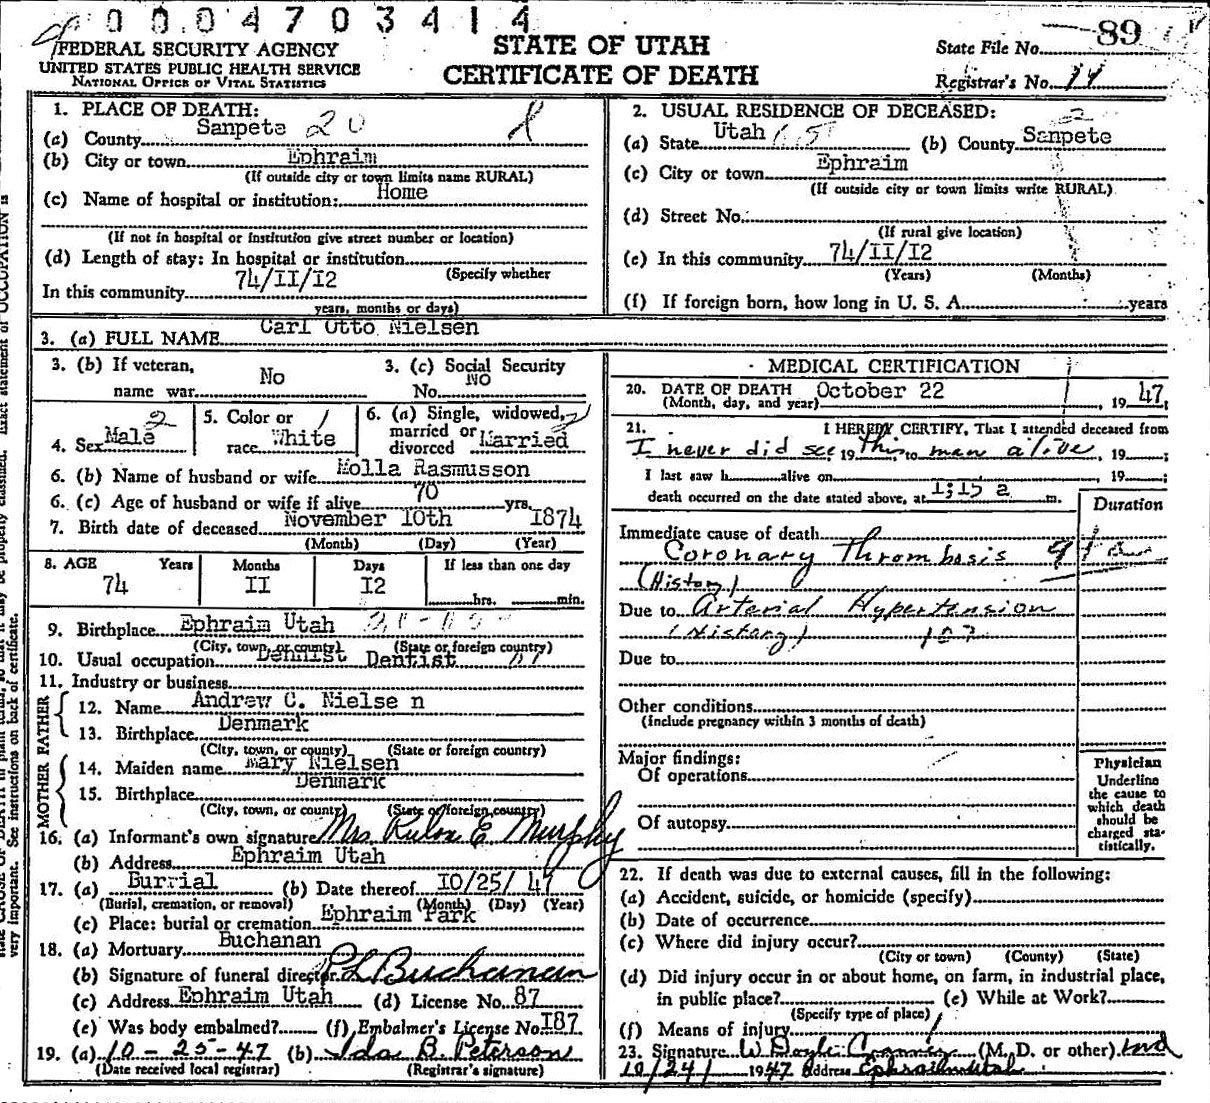 0004703414
FEDERAL SECURITY AGENCY
UNITED STATES PUBLIC HEALTH SERVICE
NATIONAL OFFICE OF VITAL STATISTICS
STATE OF UTAH
CERTIFICATE OF DEATH
State File No. 89
Registrar's No. 14
1. PLACE OF DEATH:
(a) County Sanpete 20
(b) City or town Ephraim
(If outside city or town limits name RURAL)
(c) Name of hospital or institution: Home
(If not in hospital or institution give street number or location)
(d) Length of stay: In hospital or institution
(Specify whether
In this community 74/II/I2
years, months or days)
2. USUAL RESIDENCE OF DECEASED:
(a) State Utah (b) County Sanpete
(c) City or town Ephraim
(If outside city or town limits write RURAL)
(d) Street No.
(If rural give location)
(e) In this community 74/II/I2
(Years) (Months)
(f) If foreign born, how long in U. S. A. years
3. (a) FULL NAME Carl Otto Nielsen
3. (b) If veteran,
name war No
3. (c) Social Security
No. NO
4. Sex Male 2
5. Color or
race White
6. (a) Single, widowed,
married or
divorced Married
6. (b) Name of husband or wife Molla Rasmusson
6. (c) Age of husband or wife if alive 70 yrs.
7. Birth date of deceased November 10th 1874
(Month) (Day) (Year)
8. AGE Years Months Days If less than one day
74 II I2 hrs. min.
9. Birthplace Ephraim Utah
(City, town, or county) (State or foreign country)
10. Usual occupation Dentist
11. Industry or business
FATHER
12. Name Andrew C. Nielse n
13. Birthplace Denmark
(City, town, or county) (State or foreign country)
MOTHER
14. Maiden name Mary Nielsen
15. Birthplace Denmark
(City, town, or county) (State or foreign country)
16. (a) Informant's own signature Mrs. Rulon E. Murphy
(b) Address Ephraim Utah
17. (a) Burrial (b) Date thereof IO/25/ 47
(Burial, cremation, or removal) (Month) (Day) (Year)
(c) Place: burial or cremation Ephraim Park
18. (a) Mortuary Buchanan
(b) Signature of funeral director Buchanan
(c) Address Ephraim Utah (d) License No. 87
(e) Was body embalmed? (f) Embalmer's License No. I87
19. (a) 10-25-47 (b) Ida B. Peterson
(Date received local registrar) (Registrar's signature)
MEDICAL CERTIFICATION
20. DATE OF DEATH October 22, 19 47
(Month, day, and year)
21. I HEREBY CERTIFY, That I attended deceased from
I never did see, 19 this, to man alive, 19 ;
I last saw h alive on , 19 ;
death occurred on the date stated above, at 1;15 a m.
Duration
Immediate cause of death
Coronary Thrombosis
(History)
Due to Arterial Hypertension
(History) 102
Due to
Other conditions
(Include pregnancy within 3 months of death)
Major findings:
Of operations
Of autopsy
Physician
Underline
the cause to
which death
should be
charged sta-
tistically.
22. If death was due to external causes, fill in the following:
(a) Accident, suicide, or homicide (specify)
(b) Date of occurrence
(c) Where did injury occur?
(City or town) (County) (State)
(d) Did injury occur in or about home, on farm, in industrial place,
in public place? (e) While at Work?
(Specify type of place)
(f) Means of injury
23. Signature W Doyle (M. D. or other) md
10/24/ 1947 Address Ephraim Utah
very important. See instructions on back of certificate.